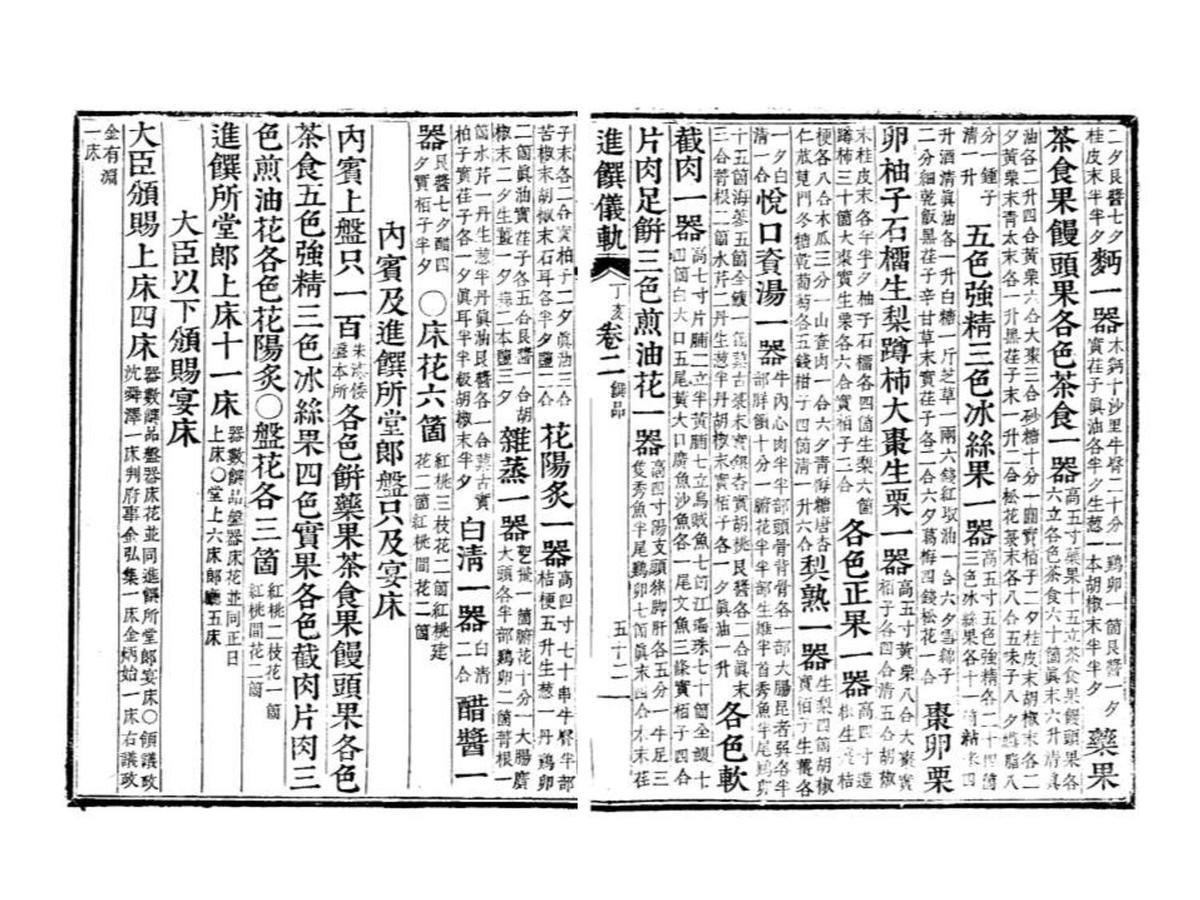 二夕艮醬七夕桂皮末半半夕 麪一器 木麪十沙里牛臀二十分鷄卵一箇艮醬一夕實荏子眞油各半夕生葱一本胡椒末半半夕 藥果
茶食果饅頭果各色茶食一器 高五寸藥果十五立茶食果饅頭果各六立各色茶食六十箇眞末六升淸眞
油各二升四合黃栗六合大棗三合砂糖十分一圓實栢子二夕桂皮末胡椒末各二夕黃栗末靑太末各一升黑荏子末一升二合松花葛末各八合五味子八夕臙脂八
分一鍾子淸一升 五色強精三色冰絲果一器 高五寸五色強精各二十四箇三色冰絲果各十一箇粘米四
升酒淸眞油各一升白糖一斤芝草一兩六錢紅取油一合六夕雪綿子二分細乾飯黑荏子辛甘草末實荏子各二合六夕烏梅四錢松花一合 棗卵栗
卵柚子石榴生梨蹲柿大棗生栗一器 高五寸黃栗八合大棗實栢子各四合淸五合胡椒
末桂皮末各半夕柚子石榴各四箇生梨六箇蹲柿三十箇大棗實生栗各六合實栢子二合 各色正果一器 高四寸蓮根生桔
梗各八合木瓜三分一山査肉一合六夕靑梅糖唐杏仁蔽莧門冬糖乾葡萄各五錢柑子四箇淸一升六合 梨熟一器 生梨四箇胡椒實栢子生薑各
一夕白淸一合 悅口資湯一器 牛內心肉半半部頭骨背骨各一部大腸昆者巽各半部胖領十分一腑花半半部生雉半首秀魚半尾鷄卵
十五箇海蔘五箇全鰒一箇菉末實銀杏實胡桃艮醬各二合眞末三合菁根二箇水芹二丹生葱半丹胡椒末實栢子各一夕眞油一升 各色軟
截肉一器 高七寸片脯二立半黃脯七立烏賊魚七箇江瑤珠七十箇全鰒七箇白大口五尾黃大口廣魚沙魚各一尾文魚三條實栢子四合
片肉足餠三色煎油花一器 高四寸陽支頭猪脚肝各五分一牛足三隻秀魚半尾鷄卵七箇眞末四合木末荏
進饌儀軌 丁亥 卷二 饌品 五十二
子末各二合實栢子二夕眞油三合苦椒末胡椒末石耳各半夕鹽二合 花陽炙一器 高四寸七十串牛臀半部桔梗五升生葱一丹鷄卵
二箇眞油實荏子各五合艮醬一合胡椒末二夕生薑一夕蒜二本鹽三夕 雜蒸一器 乾獤一箇腑花十分一大腸廣大頭各半部鷄卵二箇菁根一
箇水芹一丹生葱半丹眞油艮醬各一合菉古實栢子實荏子各一夕眞耳半半級胡椒末半夕 白淸一器 白淸二合 醋醬一
器 艮醬七夕醋四夕實栢子半夕 ○床花六箇 紅桃三枝花二箇紅桃建花二箇紅桃間花二箇
內賓及進饌所堂郎盤只及宴床
內賓上盤只一百 朱漆倭盤本所 各色餠藥果茶食果饅頭果各色
茶食五色強精三色冰絲果四色實果各色截肉片肉三
色煎油花各色花陽炙○盤花各三箇 紅桃二枝花一箇紅桃間花二箇
進饌所堂郎上床十一床 器數饌品盤器床花並同正日上床○堂上六床郎廳五床
大臣以下頒賜宴床
大臣頒賜上床四床 器數饌品盤器床花並同進饌所堂郎宴床○領議政沈舜澤一床判府事金弘集一床金炳始一床右議政
金有淵一床